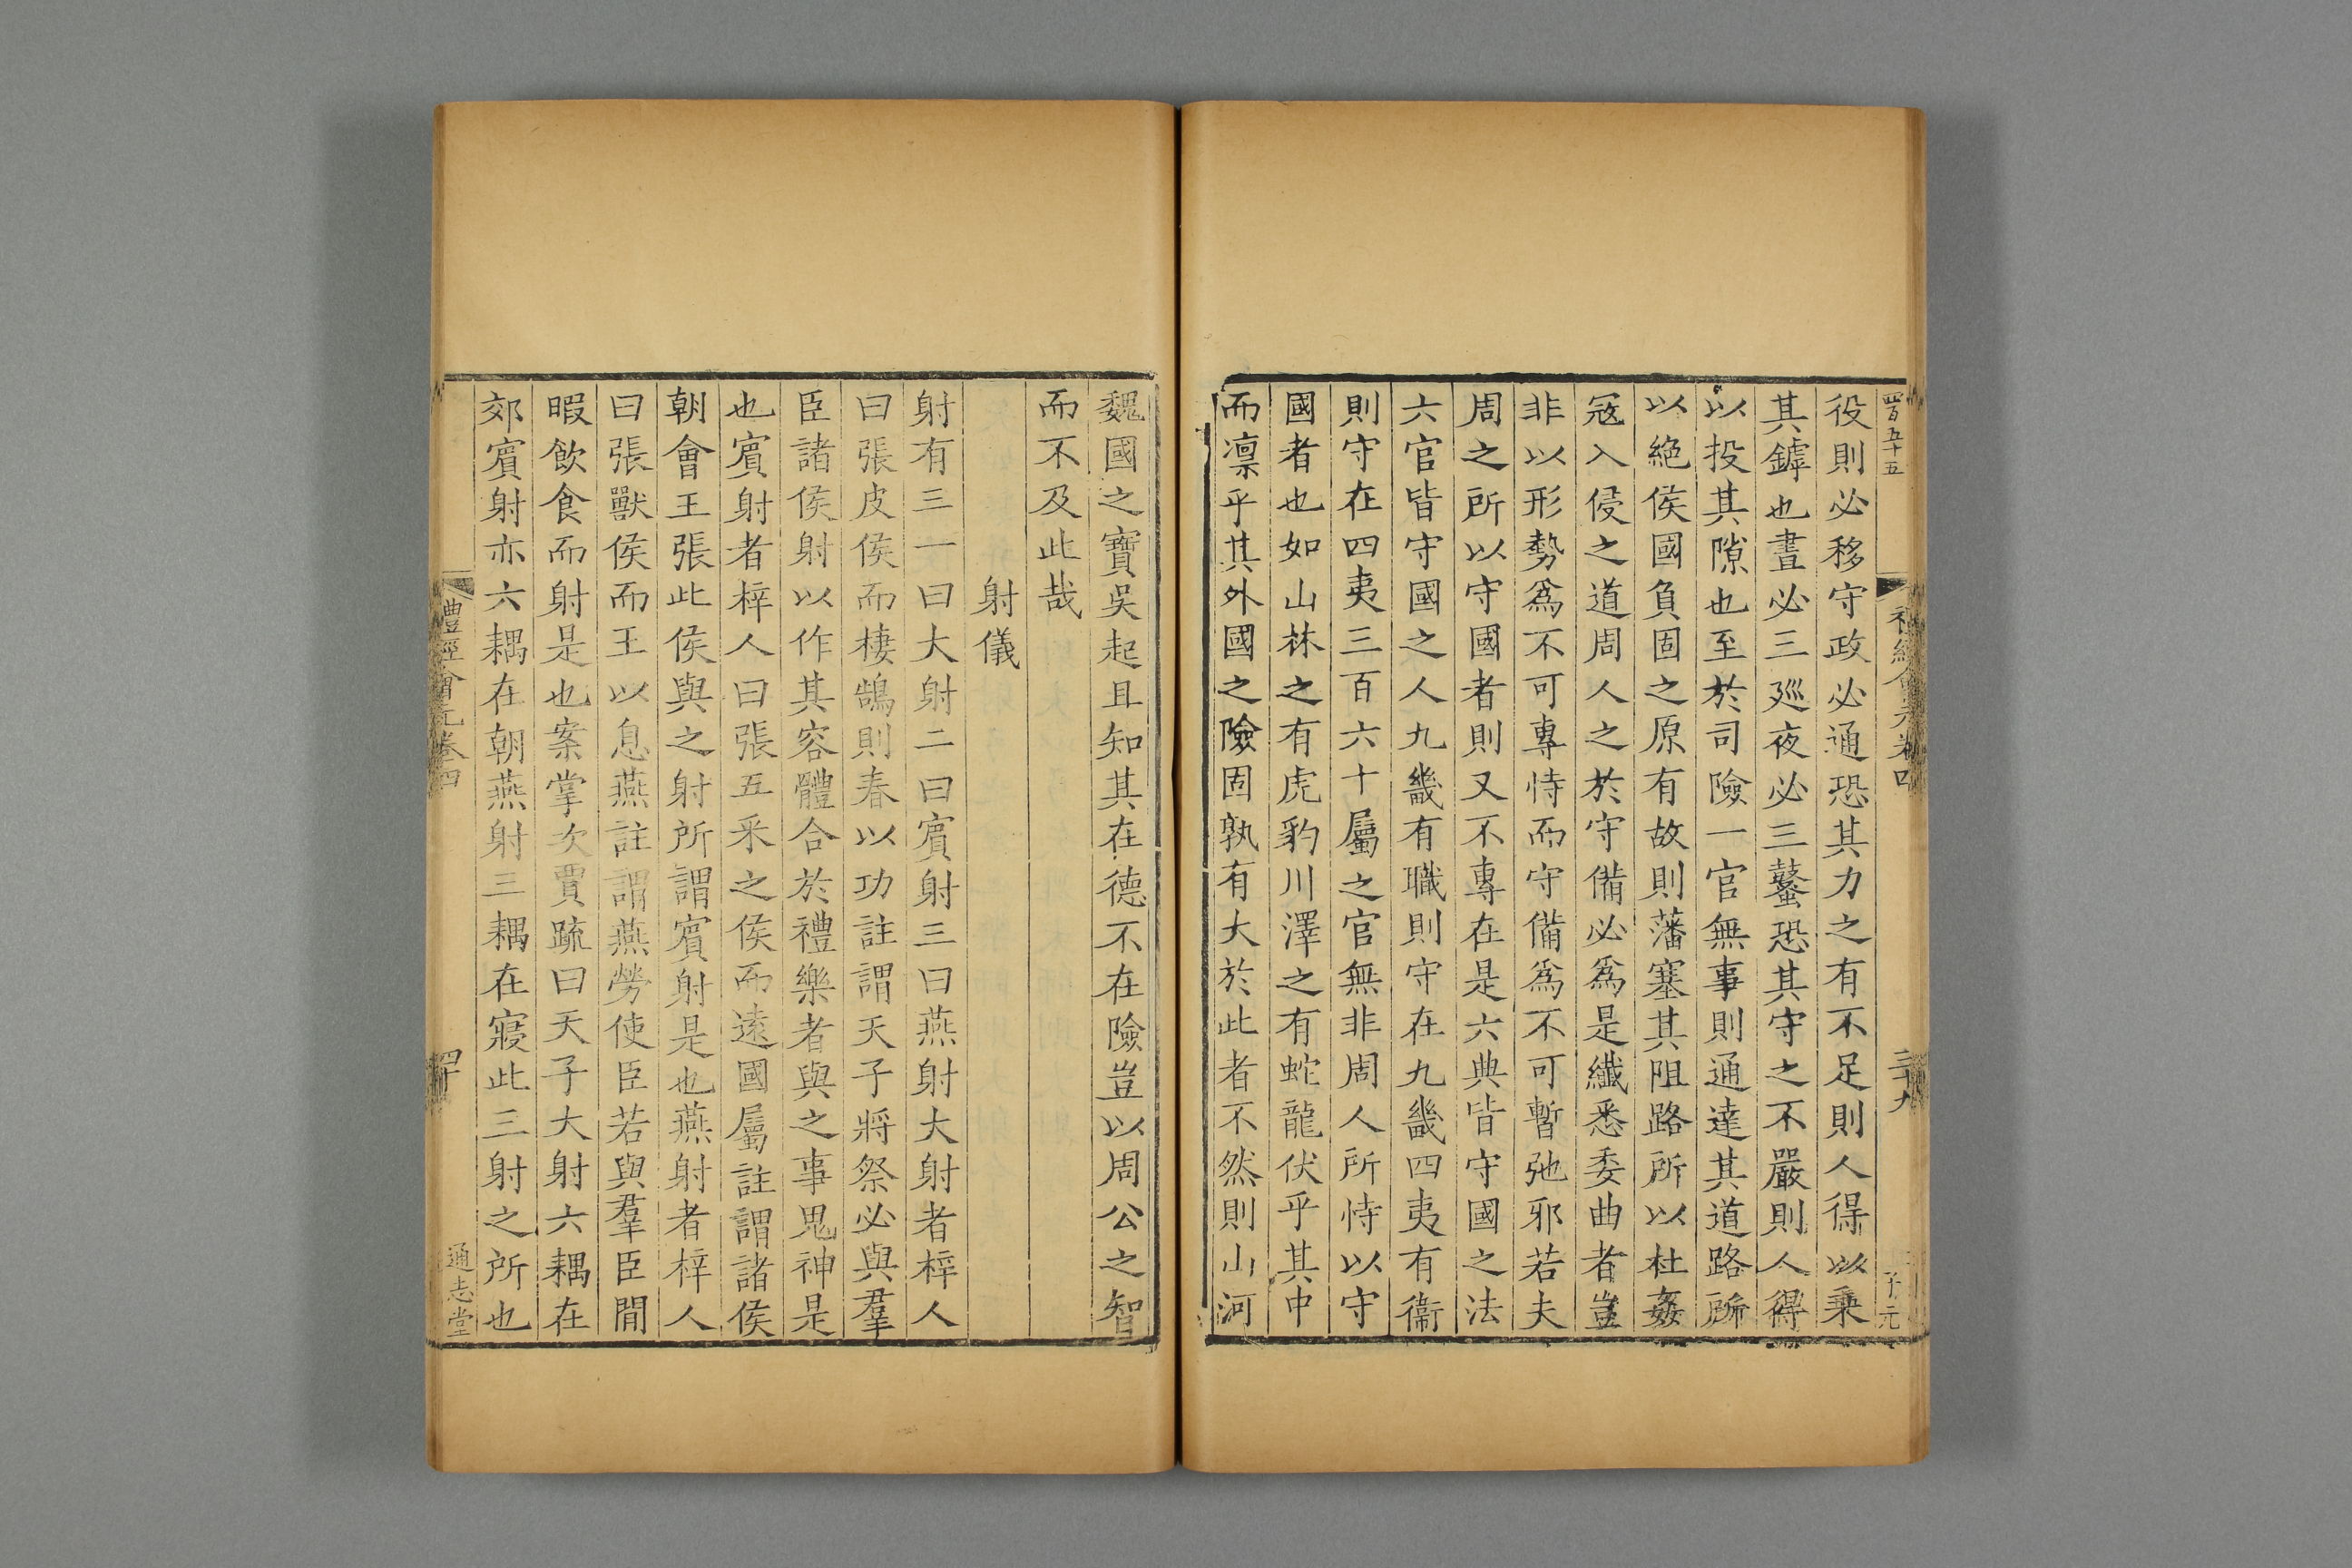 四百五十五
禮經會元卷四
三十九
子元
役則必移守政必通恐其力之有不足則人得以乘
其鎼也晝必三廵夜必三鼜恐其守之不嚴則人得
以投其隙也至於司險一官無事則通達其道路所
以絶侯國負固之原有故則藩塞其阻路所以杜姦
宼入侵之道周人之於守備必爲是纖悉委曲者豈
非以形勢爲不可專恃而守備爲不可暫弛邪若夫
周之所以守國者則又不專在是六典皆守國之法
六官皆守國之人九畿有職則守在九畿四夷有衞
則守在四夷三百六十屬之官無非周人所恃以守
國者也如山林之有虎豹川澤之有蛇龍伏乎其中
而凛乎其外國之險固孰有大於此者不然則山河
魏國之寶吳起且知其在德不在險豈以周公之智
而不及此哉
射儀
射有三一曰大射二曰賔射三曰燕射大射者梓人
曰張皮侯而棲鵠則春以功註謂天子將祭必與羣
臣諸侯射以作其容體合於禮樂者與之事鬼神是
也賔射者梓人曰張五采之侯而遠國屬註謂諸侯
朝會王張此侯與之射所謂賔射是也燕射者梓人
曰張獸侯而王以息燕註謂燕勞使臣若與羣臣閒
暇飲食而射是也案掌次賈疏曰天子大射六耦在
郊賔射亦六耦在朝燕射三耦在寢此三射之所也
禮經會元卷四
四十
通志堂